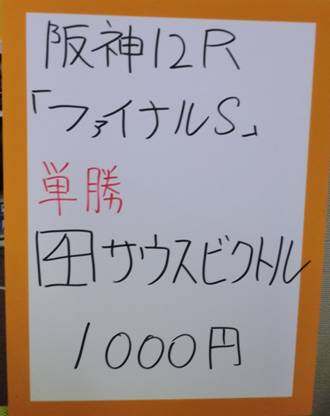 阪神12R
「ファイナルS」
単勝
4サウスビクトル
1000円